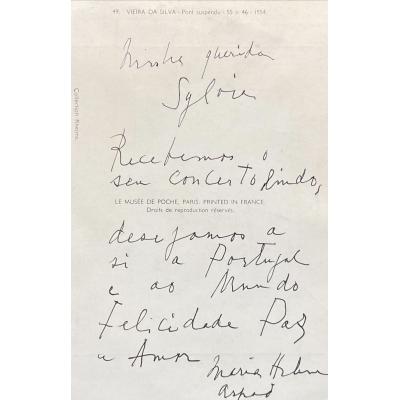 49. VIEIRA DA SILVA - Pont suspendu - 55 x 46 - 1954.
Collection Rhéims
Minha querida
Sylvia
Recebemos o
seu concerto lindo,
LE MUSÉE DE POCHE, PARIS. PRINTED IN FRANCE
Droits de reproduction réservés.
desejamos a
si a Portugal
e ao Mundo
Felicidade Paz
e Amor
Maria Helena
Arpad